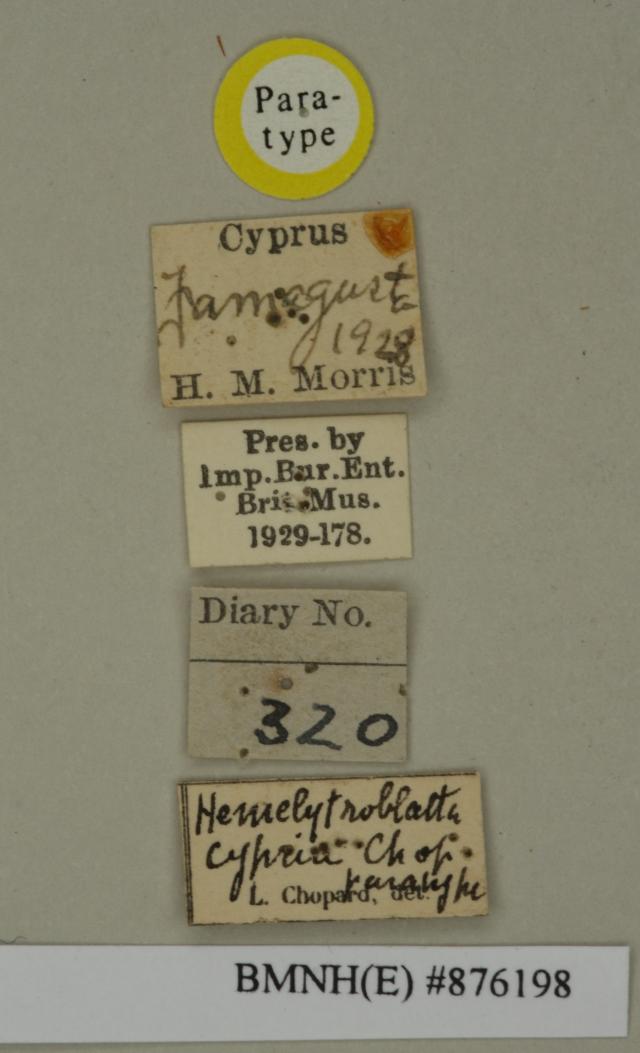 Para-
type
Cyprus
Famagusta
1928
H. M. Morris
Pres. by
Imp.Bur.Ent.
Brit.Mus.
1929-178.
Diary No.
320
Hemelytroblatta
cypria Chop.
paratype
L. Chopard, det.
BMNH(E) #876198